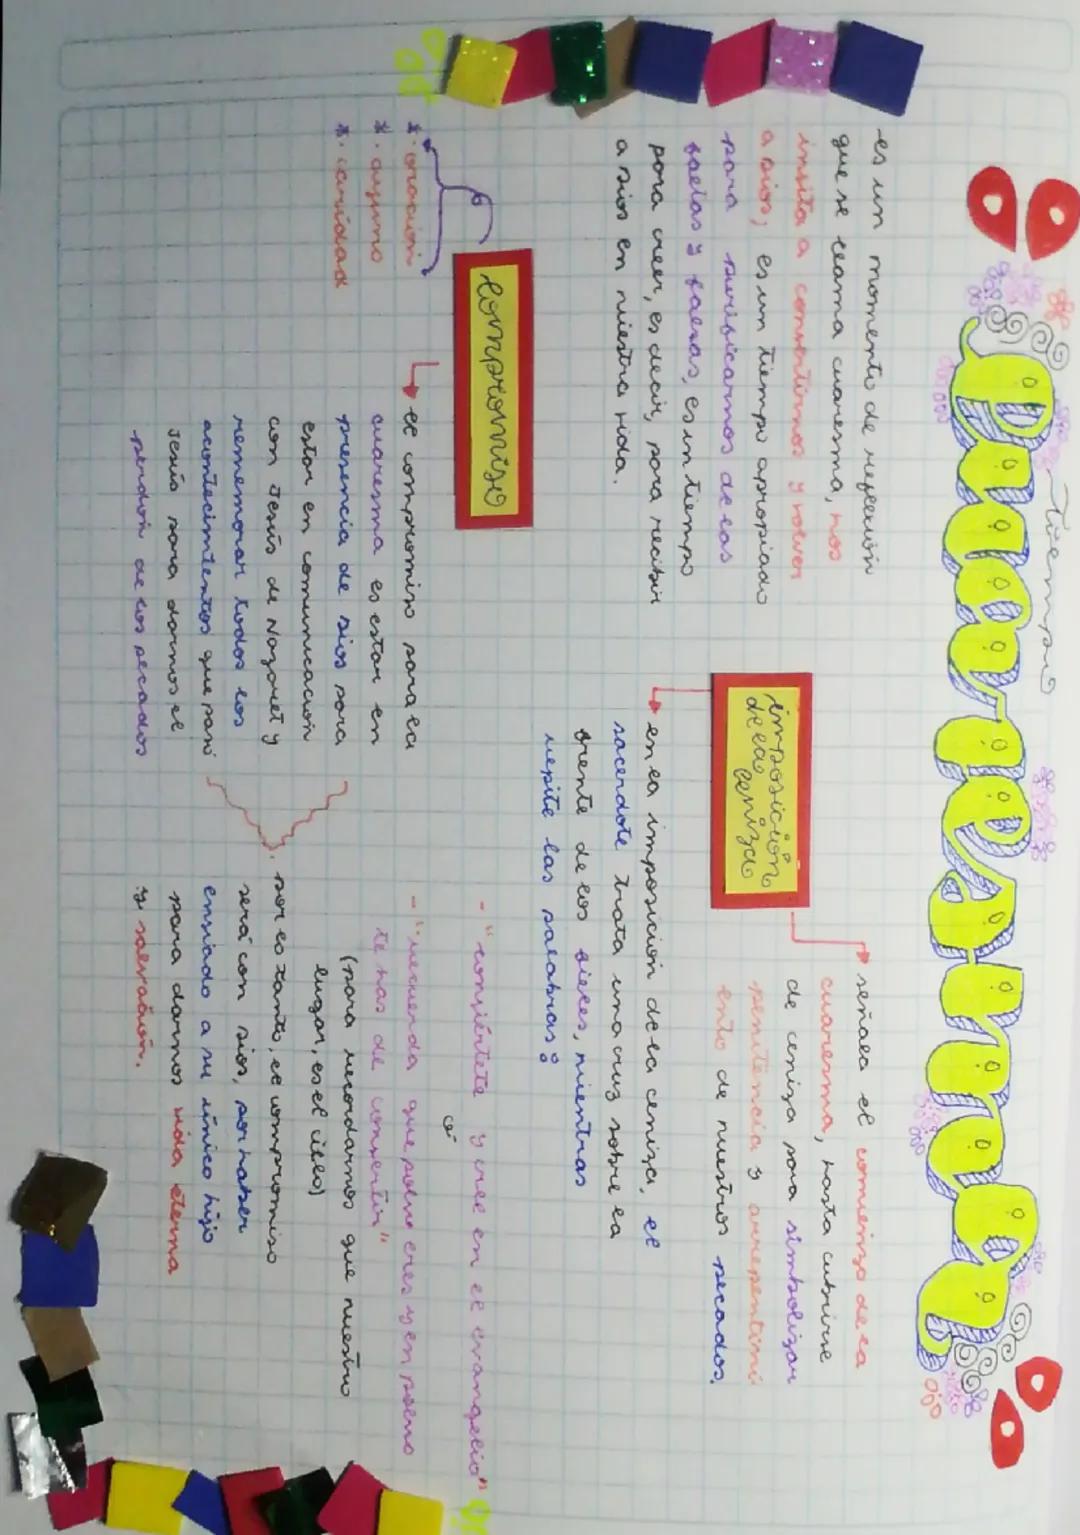 tiempo
Cuaresma
es un momento de reflexión
que se llama cuaresma, nos
invita a convertirnos y volver
a Dios, es un tiempo apropiado
para purificarnos de las
faltas y fallas, es un tiempo
para creer, es decir, para recibir
a Dios en nuestra vida.
imposición
de la ceniza
señala el comienzo de la
cuaresma, hasta cubrirse
de ceniza para simbolizar
penitencia y arrepentimi
ento de nuestros pecados.
en la imposición de la ceniza, el
sacerdote trata una cruz sobre la
frente de los fieles, mientras
repite las palabras:
- "conviértete y cree en el evangelio"
- "recuerda que polvo eres y en polvo
te has de convertir"
(para recordarnos que nuestro
lugar, es el cielo)
Compromiso
*. oración
*. ayuno
*. caridad
el compromiso para la
cuaresma es estar en
presencia de Dios para
estar en comunicación
con Jesús de Nazaret y
rememorar todos los
acontecimientos que pasó
Jesús para darnos el
perdón de los pecados
. por lo tanto, el compromiso
será con Dios, por haber
enviado a su único hijo
para darnos vida eterna
y salvación.